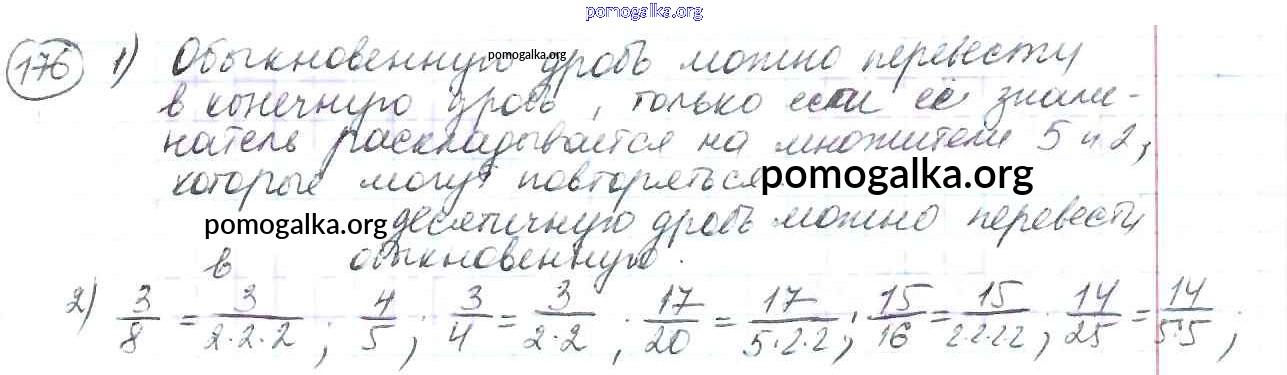 pomogalka.org
176 1) Обыкновенную дробь можно перевести
pomogalka.org
в конечную дробь, только если её знаме-
натель раскладывается на множители 5 и 2,
которые могут повторяться
pomogalka.org
десятичную дробь можно перевести
pomogalka.org
в обыкновенную.
2) 3/8 = 3/(2·2·2); 4/5; 3/4 = 3/(2·2); 17/20 = 17/(5·2·2); 15/16 = 15/(2·2·2·2); 14/25 = 14/(5·5);